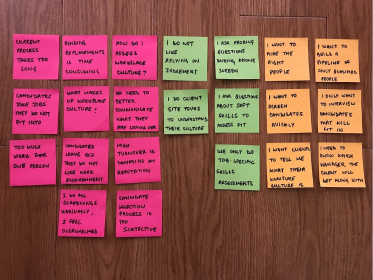 CURRENT
PROCESS
TAKES TOO
LONG
FINDING
REPLACEMENTS
IS TIME
CONSUMING
HOW DO I
ASSESS
WORKPLACE
CULTURE?
I DO NOT
LIKE
RELYING ON
JUDGEMENT
I ASK PROBING
QUESTIONS
DURING PHONE
SCREEN
I WANT TO
HIRE THE
RIGHT
PEOPLE
I WANT TO
BUILD A
PIPELINE OF
ONLY QUALIFIED
PEOPLE
CANDIDATES
TAKE JOBS
THEY DO NOT
FIT INTO
WHAT MAKES
UP WORKPLACE
CULTURE?
NEED TO
BETTER
COMMUNICATE
WHAT THEY
ARE LOOKING FOR
I DO CLIENT
SITE TOURS
TO UNDERSTAND
THEIR CULTURE
I ASK QUESTIONS
ABOUT SOFT
SKILLS TO
ASSESS FIT
I WANT TO
SCREEN
CANDIDATES
QUICKLY
I ONLY WANT
TO INTERVIEW
CANDIDATES
THAT WILL
FIT IN
TOO MUCH
WORK FOR
ONE PERSON
CANDIDATES
LEAVE
THEY DO NOT
LIKE WORK
ENVIRONMENT
HIGH
TURNOVER IS
DAMAGING MY
REPUTATION
WE ONLY DO
JOB-SPECIFIC
SKILLS
ASSESSMENTS
I WANT CLIENTS
TO TELL ME
WHAT THEIR
WORKPLACE
CULTURE IS
I NEED TO
KNOW WHICH
MANAGER THE
TALENT WILL
GET ALONG WITH
I DO ALL
SCREENINGS
MANUALLY,
I FEEL
OVERWHELMED
CANDIDATE
SELECTION
PROCESS IS
TOO
SUBJECTIVE